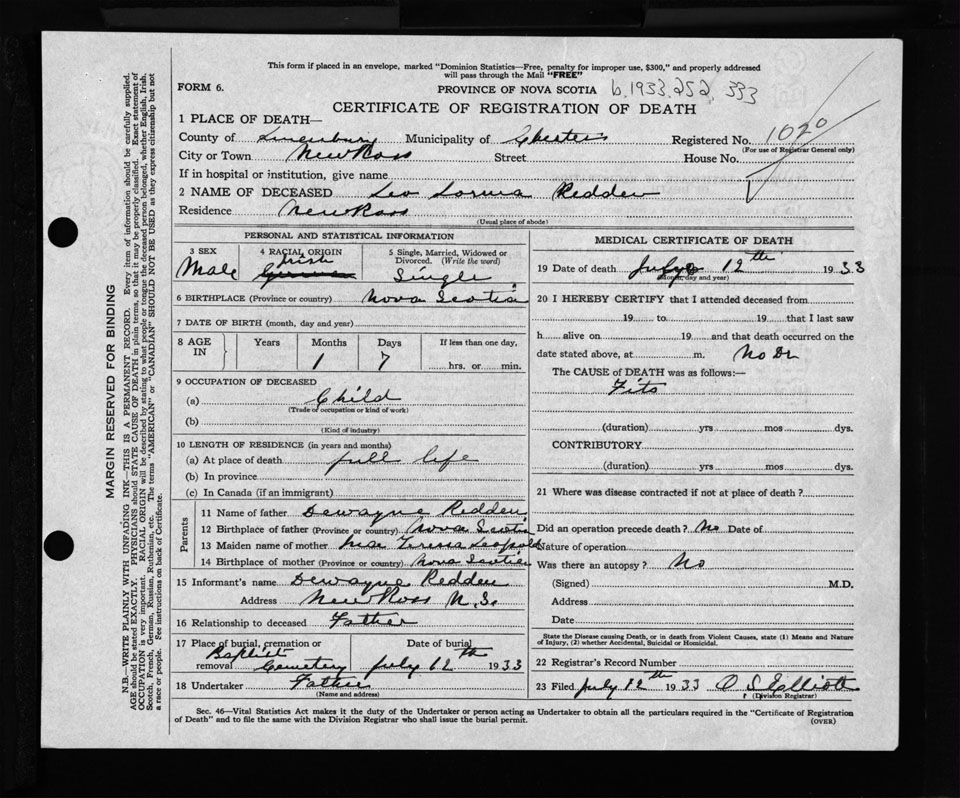 This form if placed in an envelope, marked "Dominion Statistics—Free, penalty for improper use, $300," and properly addressed
will pass through the Mail "FREE"
FORM 6.
PROVINCE OF NOVA SCOTIA b.1933.252.333
CERTIFICATE OF REGISTRATION OF DEATH
1 PLACE OF DEATH—
County of Lunenburg Municipality of Chester Registered No. 1020
(For use of Registrar General only)
City or Town New Ross Street House No.
If in hospital or institution, give name
2 NAME OF DECEASED Leo Redden
Residence New Ross
(Usual place of abode)
PERSONAL AND STATISTICAL INFORMATION
3 SEX 4 RACIAL ORIGIN 5 Single, Married, Widowed or Divorced. (Write the word)
Male Irish German Single
6 BIRTHPLACE (Province or country) Nova Scotia
7 DATE OF BIRTH (month, day and year)
8 AGE IN Years Months Days If less than one day,
1 7 hrs. or min.
9 OCCUPATION OF DECEASED
(a) Child
(Trade or occupation or kind of work)
(b)
(Kind of industry)
10 LENGTH OF RESIDENCE (in years and months)
(a) At place of death full life
(b) In province
(c) In Canada (if an immigrant)
Parents
11 Name of father Dewayne Redden
12 Birthplace of father (Province or country) Nova Scotia
13 Maiden name of mother Teresa Leopold
14 Birthplace of mother (Province or country) Nova Scotia
15 Informant's name Dewayne Redden
Address New Ross N.S.
16 Relationship to deceased Father
17 Place of burial, cremation or Date of burial
removal Baptist Cemetery July 12th 1933
18 Undertaker Father
(Name and address)
MEDICAL CERTIFICATE OF DEATH
19 Date of death July 12th 1933
(Month, day and year)
20 I HEREBY CERTIFY that I attended deceased from
19 to 19 that I last saw
h alive on 19 and that death occurred on the
date stated above, at m. No Dr
The CAUSE of DEATH was as follows:—
Fits
(duration) yrs mos dys.
CONTRIBUTORY
(duration) yrs mos dys.
21 Where was disease contracted if not at place of death?
Did an operation precede death? No Date of
Nature of operation
Was there an autopsy? No
(Signed) M.D.
Address
Date
State the Disease causing Death, or in death from Violent Causes, state (1) Means and Nature
of Injury, (2) whether Accidental, Suicidal or Homicidal.
22 Registrar's Record Number
23 Filed July 12th 1933 O S Elliott
(Division Registrar)
Sec. 46—Vital Statistics Act makes it the duty of the Undertaker or person acting as Undertaker to obtain all the particulars required in the "Certificate of Registration
of Death" and to file the same with the Division Registrar who shall issue the burial permit. (OVER)
MARGIN RESERVED FOR BINDING
N.B.—WRITE PLAINLY WITH UNFADING INK—THIS IS A PERMANENT RECORD. Every item of information should be carefully supplied.
AGE should be stated EXACTLY. PHYSICIANS should STATE CAUSE OF DEATH in plain terms, so that it may be properly classified. Exact statement of
OCCUPATION is very important. RACIAL ORIGIN will be described by stating to what people or tongue the deceased person belonged, whether English, Irish,
Scotch, French, German, Russian, Ruthenian, etc. The terms "AMERICAN" or "CANADIAN" SHOULD NOT BE USED as they express citizenship but not
a race or people. See instructions on back of Certificate.